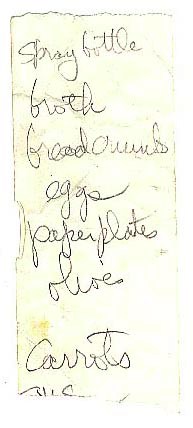 spray bottle
broth
breadcrumbs
eggs
paper plates
olives
Carrots